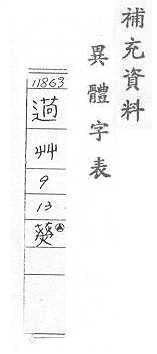 補充資料
異體字表
11863
艸
9
13
葵